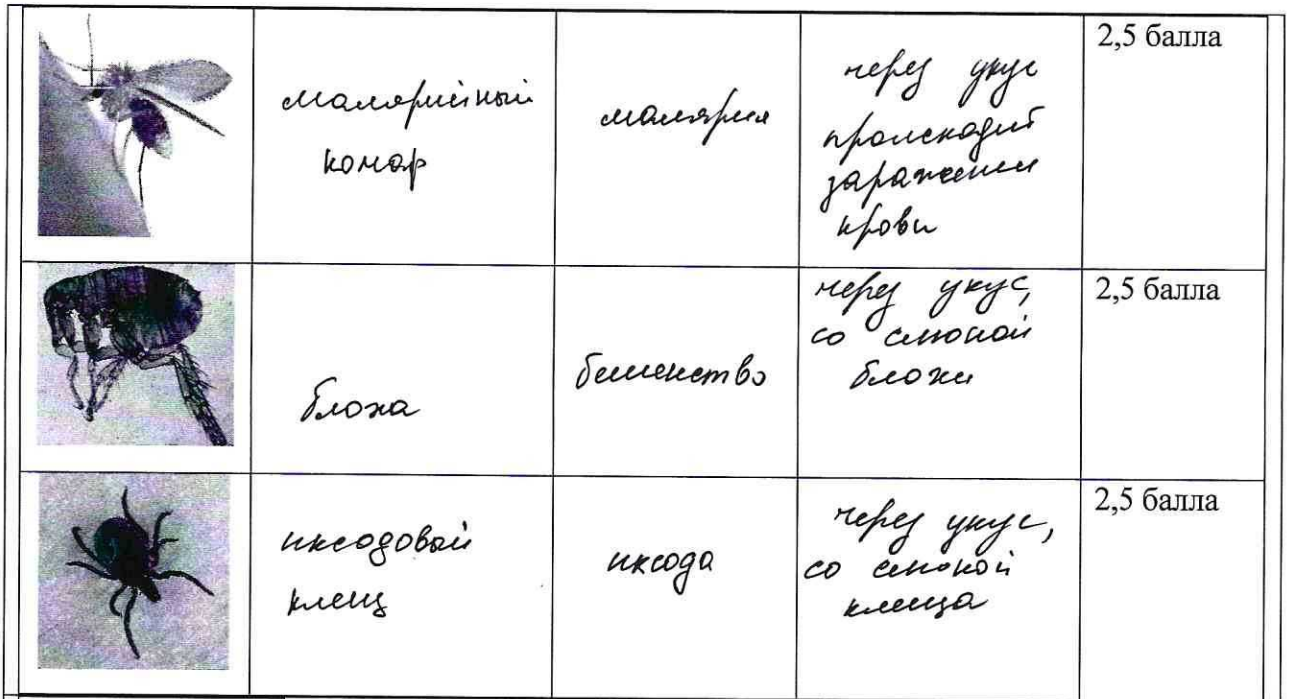 малярийный
комар
малярия
через укус
происходит
заражение
крови
2,5 балла
блоха
бешенство
через укус,
со слюной
блохи
2,5 балла
иксодовый
клещ
иксода
через укус,
со слюной
клеща
2,5 балла